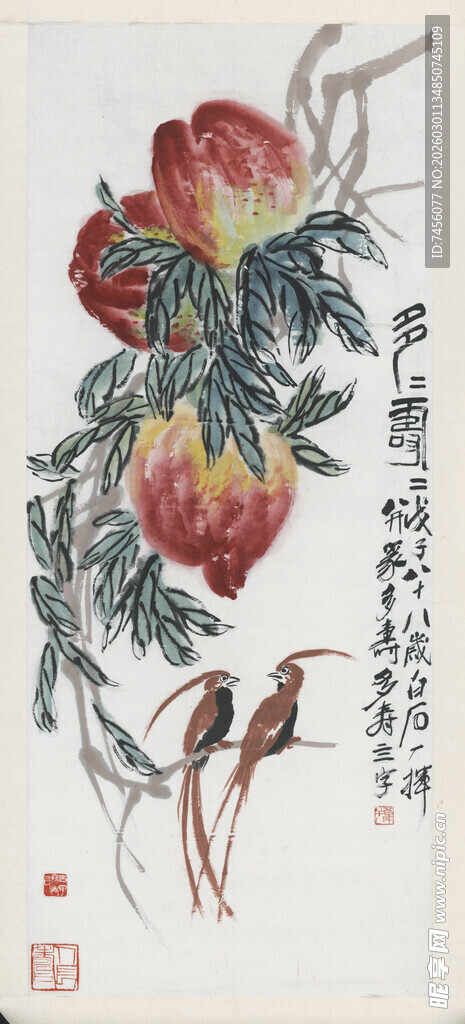 多二寿二
戊子八十八岁白石一挥
并篆多寿多寿三字
ID:7456077 NO:20260301134850745109
昵享网 www.nipic.cn